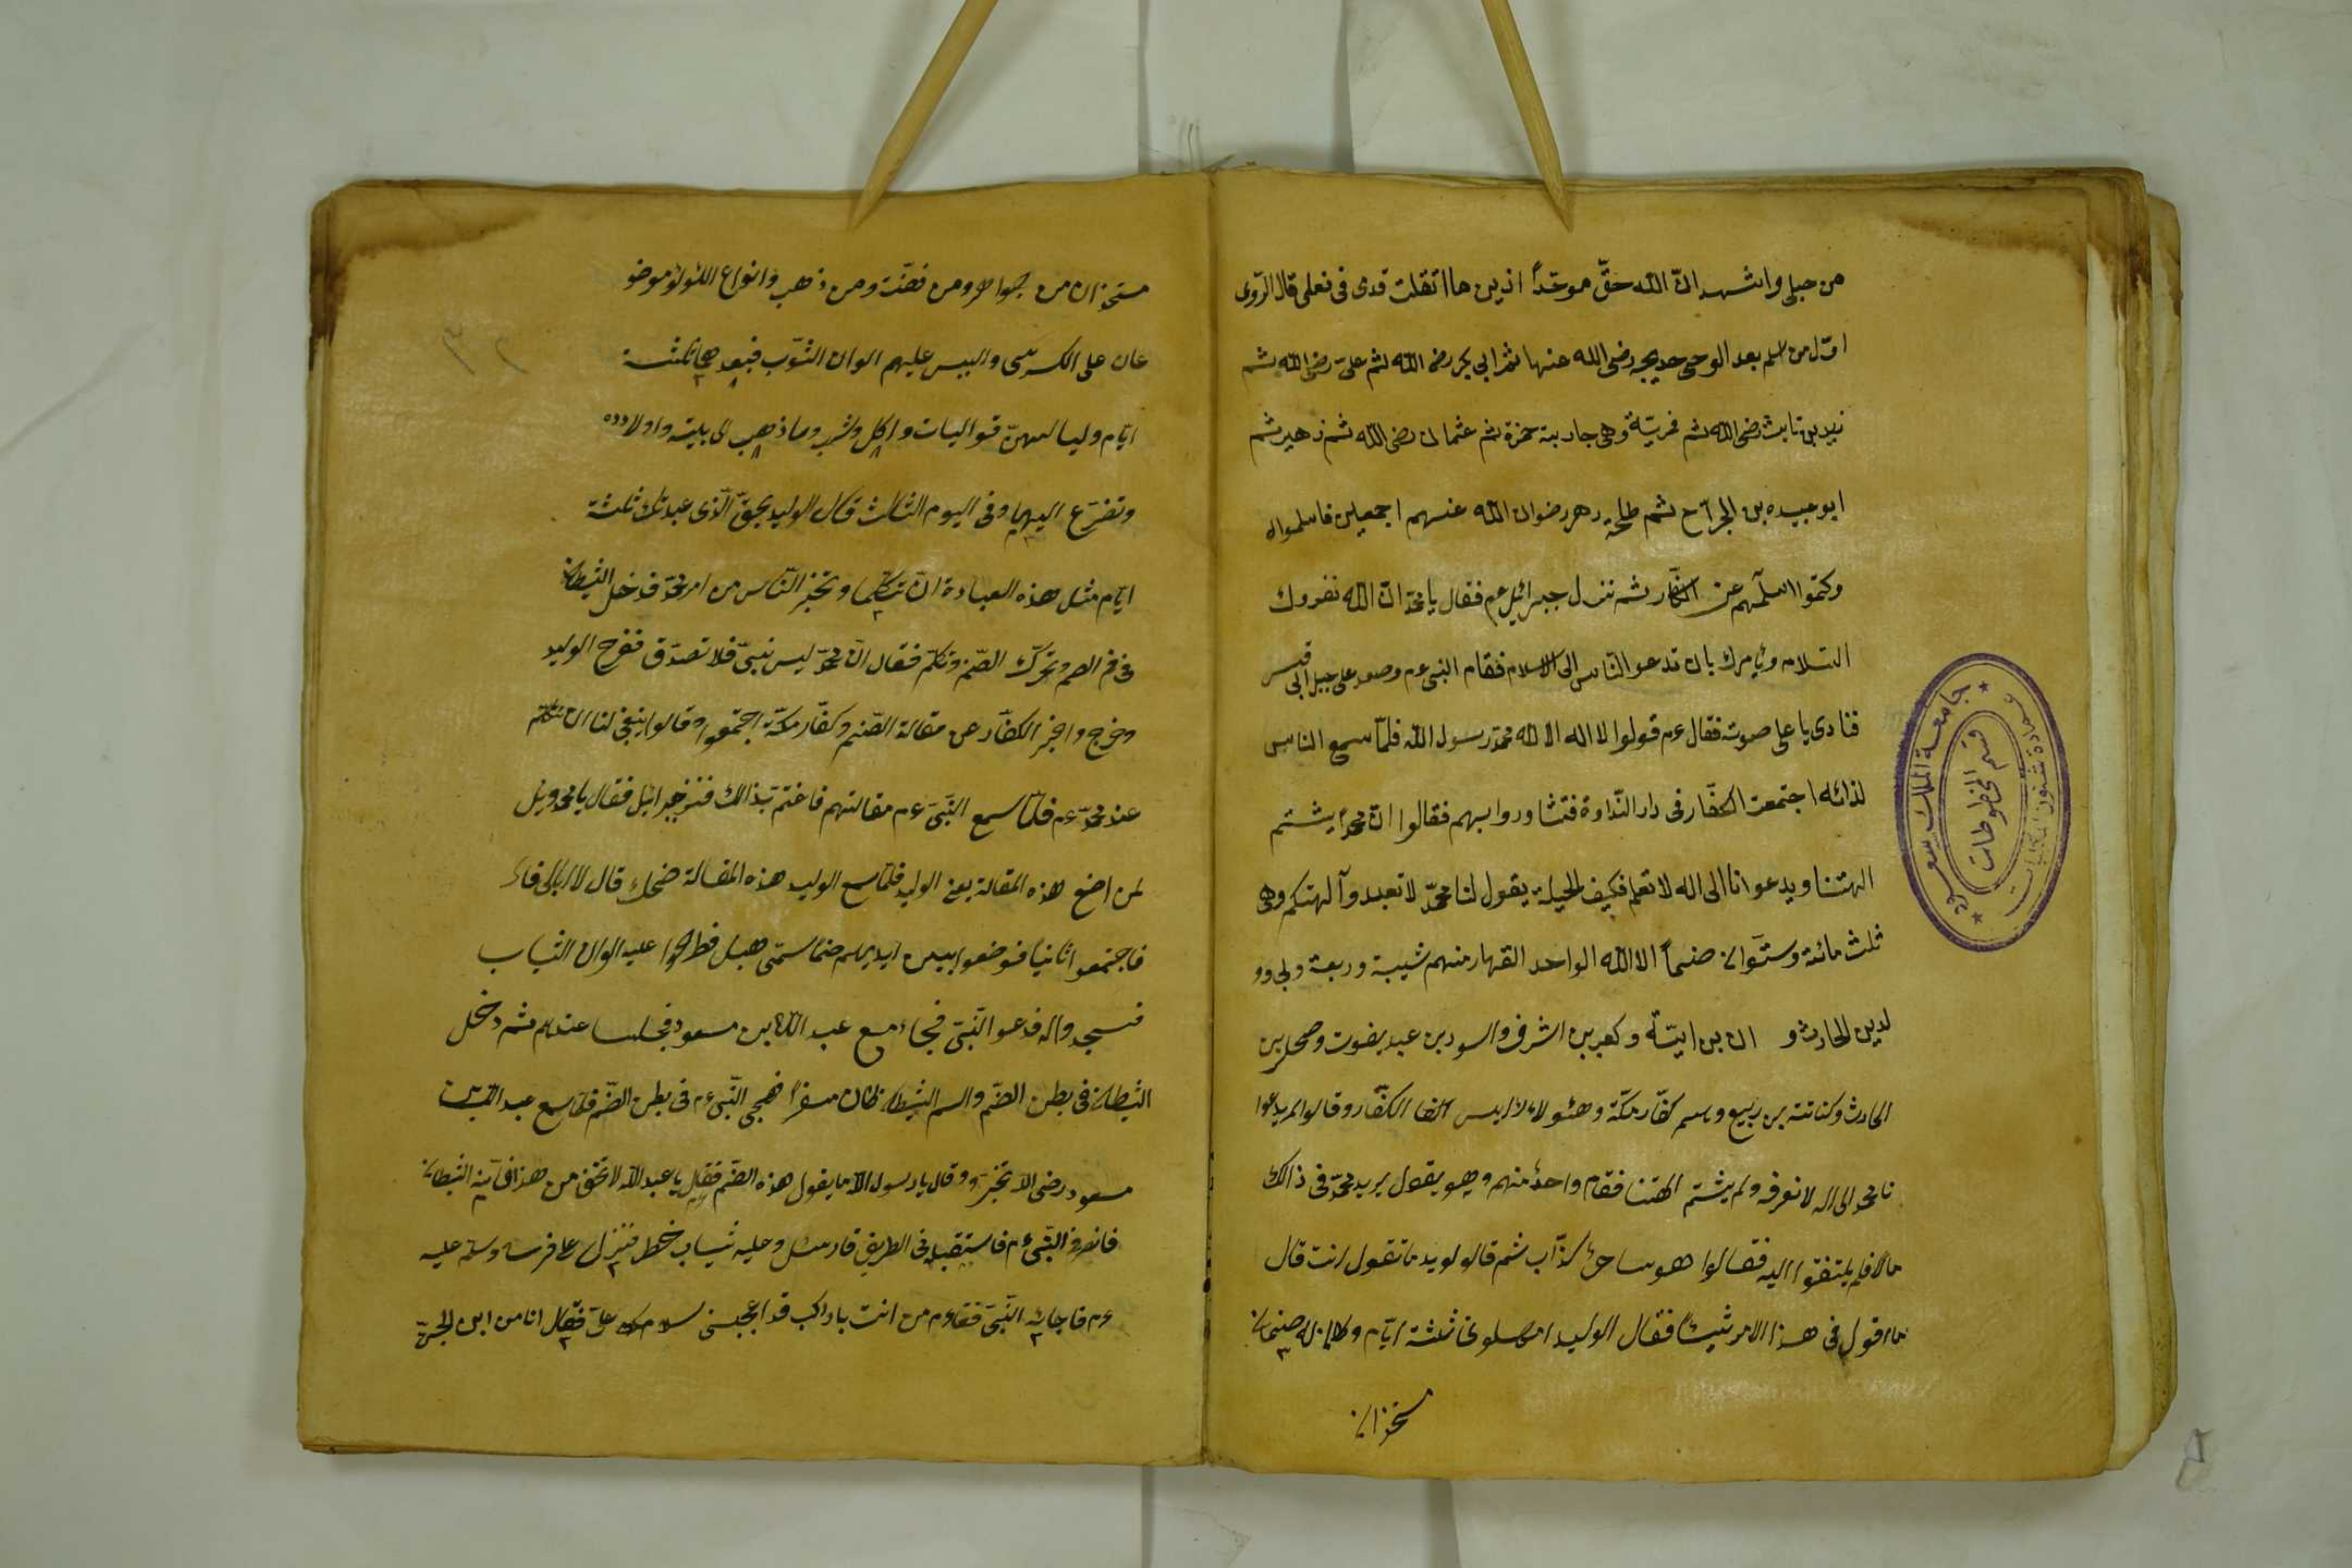 من جبلي واشهد ان الله حقّ موحّداً اذ بن ما اتقلت قدى فى نعلى قال الرّوى
اوّل من اسلم بعد الوحى خديجه رضى الله عنها ثم ابي بكر رضى الله ثم علىّ رضى الله ثم
زيد بن ثابت رضى الله ثم وهى جارية حمزة ثم عثمان رضى الله ثم زهير ثم
ابو عبيده بن الجرّاح ثم طلحة رضوان الله عنهم اجمعين فاسلموا
وكتموا اسلامهم عن الكفّار ثم نزل جبرائيل عم فقال يا محمّد انّ الله نفروك
السّلام ويأمرك بان تدعو النّاس الى الاسلام فقام النبى عم وصعد على جبل ابى قبيس
فنادى يا على صوته فقال عم قولوا لا اله الا الله محمّد رسول الله فلمّا سمع الناس
لذائه اجتمعت الكفّار فى دار النّداوة فتشاوروا بينهم فقالوا انّ محمّداً يشتم
الهتنا ويدعوانا الى اله لا نعلم فكيف الحيلة يقول لنا محمّد لا تعبدوآ الهتكم وهى
ثلث مائة وستّوان صنماً الا الله الواحد القهار منهم شيبة وربعة ولى وو
لد بن الحارث و ان بن اميّة وكعب بن اشرف والسود بن عبد يغوث وصخر بن
الحارث وكنانة بن ربيع وهم كفّار مكّة وهئولاء الكفّار وقالوا لم يدعوا
نا محمّد الى اله لا نعرفه ولم يشتم الهتنا فقام واحدٌ منهم وهو يقول يريد محمّد فى ذالك
مالا فلم يلتفتوا اليه فقالوا هو ساحرٌ كذّاب ثم قالو لوليد ما تقول انت قال
ما اقول فى هذا الامر شيئاً فقال الوليد امهلونى ثلثة ايّام وكان له صنمان
متخذان
متخذان من جواهر ومن فضّة ومن ذهب وانواع اللؤلؤ موضو
عان على الكرسى والبس عليهم الوان الثّوب فعبدهما ثلثة
ايّام وليا واكل وشرب وما ذهب الى بيته واولاده
وتضرّع اليهما وفى اليوم الثالث قال الوليد بحقّ الّذى عبدتك ثلثة
ايّام مثل هذه العبادة ان تتكلّما وتخبر النّاس من امر محمّد فدخل الشيطان
فى فم الصنم وتحرّك الصّنم وتكلّم فقال انّ محمّد ليس بنبىّ فلا تصدّق ففرح الوليد
وخرج واخبر الكفّار عن مقالة الصّنم وكفّار مكّة اجتمعوا وقالوا ينبغى لنا ان نتكلّم
عند محمّد عم فلمّا سمع النّبىّ عم مقالتهم فاغتمّ بذالك فنزل جبرائيل فقال يا محمّد ويل
لمن اصنع هذه المقالة يعنى الوليد فلمّا سمع الوليد هذه المقالة ضحك قال لا ابالى
فاجتمعوا ثانيا فوضعوا بين ايديهم صنما سمّى هبل فطرحوا عليه الوان الثياب
فسجدوا له فدعوا النّبىّ فجاء مع عبد الله بن مسعود فجلسا عندهم ثم دخل
الشيطان فى بطن الصّنم واسم الشيطان كان مسفراً فهجى النّبى عم فى بطن الصّنم فلمّا سمع عبد الله بن
مسعود رضى الله تحيّر وقال يا رسول الله ما يقول هذه الصّنم فقال يا عبد الله لا تخف من هذا فانّه الشيطان
فانصرف النّبى عم فاستقبله فى الطريق فارسٌ وعليه ثياب خضر فنزل عن فرسه وسلّم عليه
عم فاجابه النّبىّ فقال عم من انت يا راكب قد اعجبنى سلامك علىّ فقال انا من ابن الجنّ
جامعة الملك سعود
عمادة شئون المكتبات
قسم المخطوطات